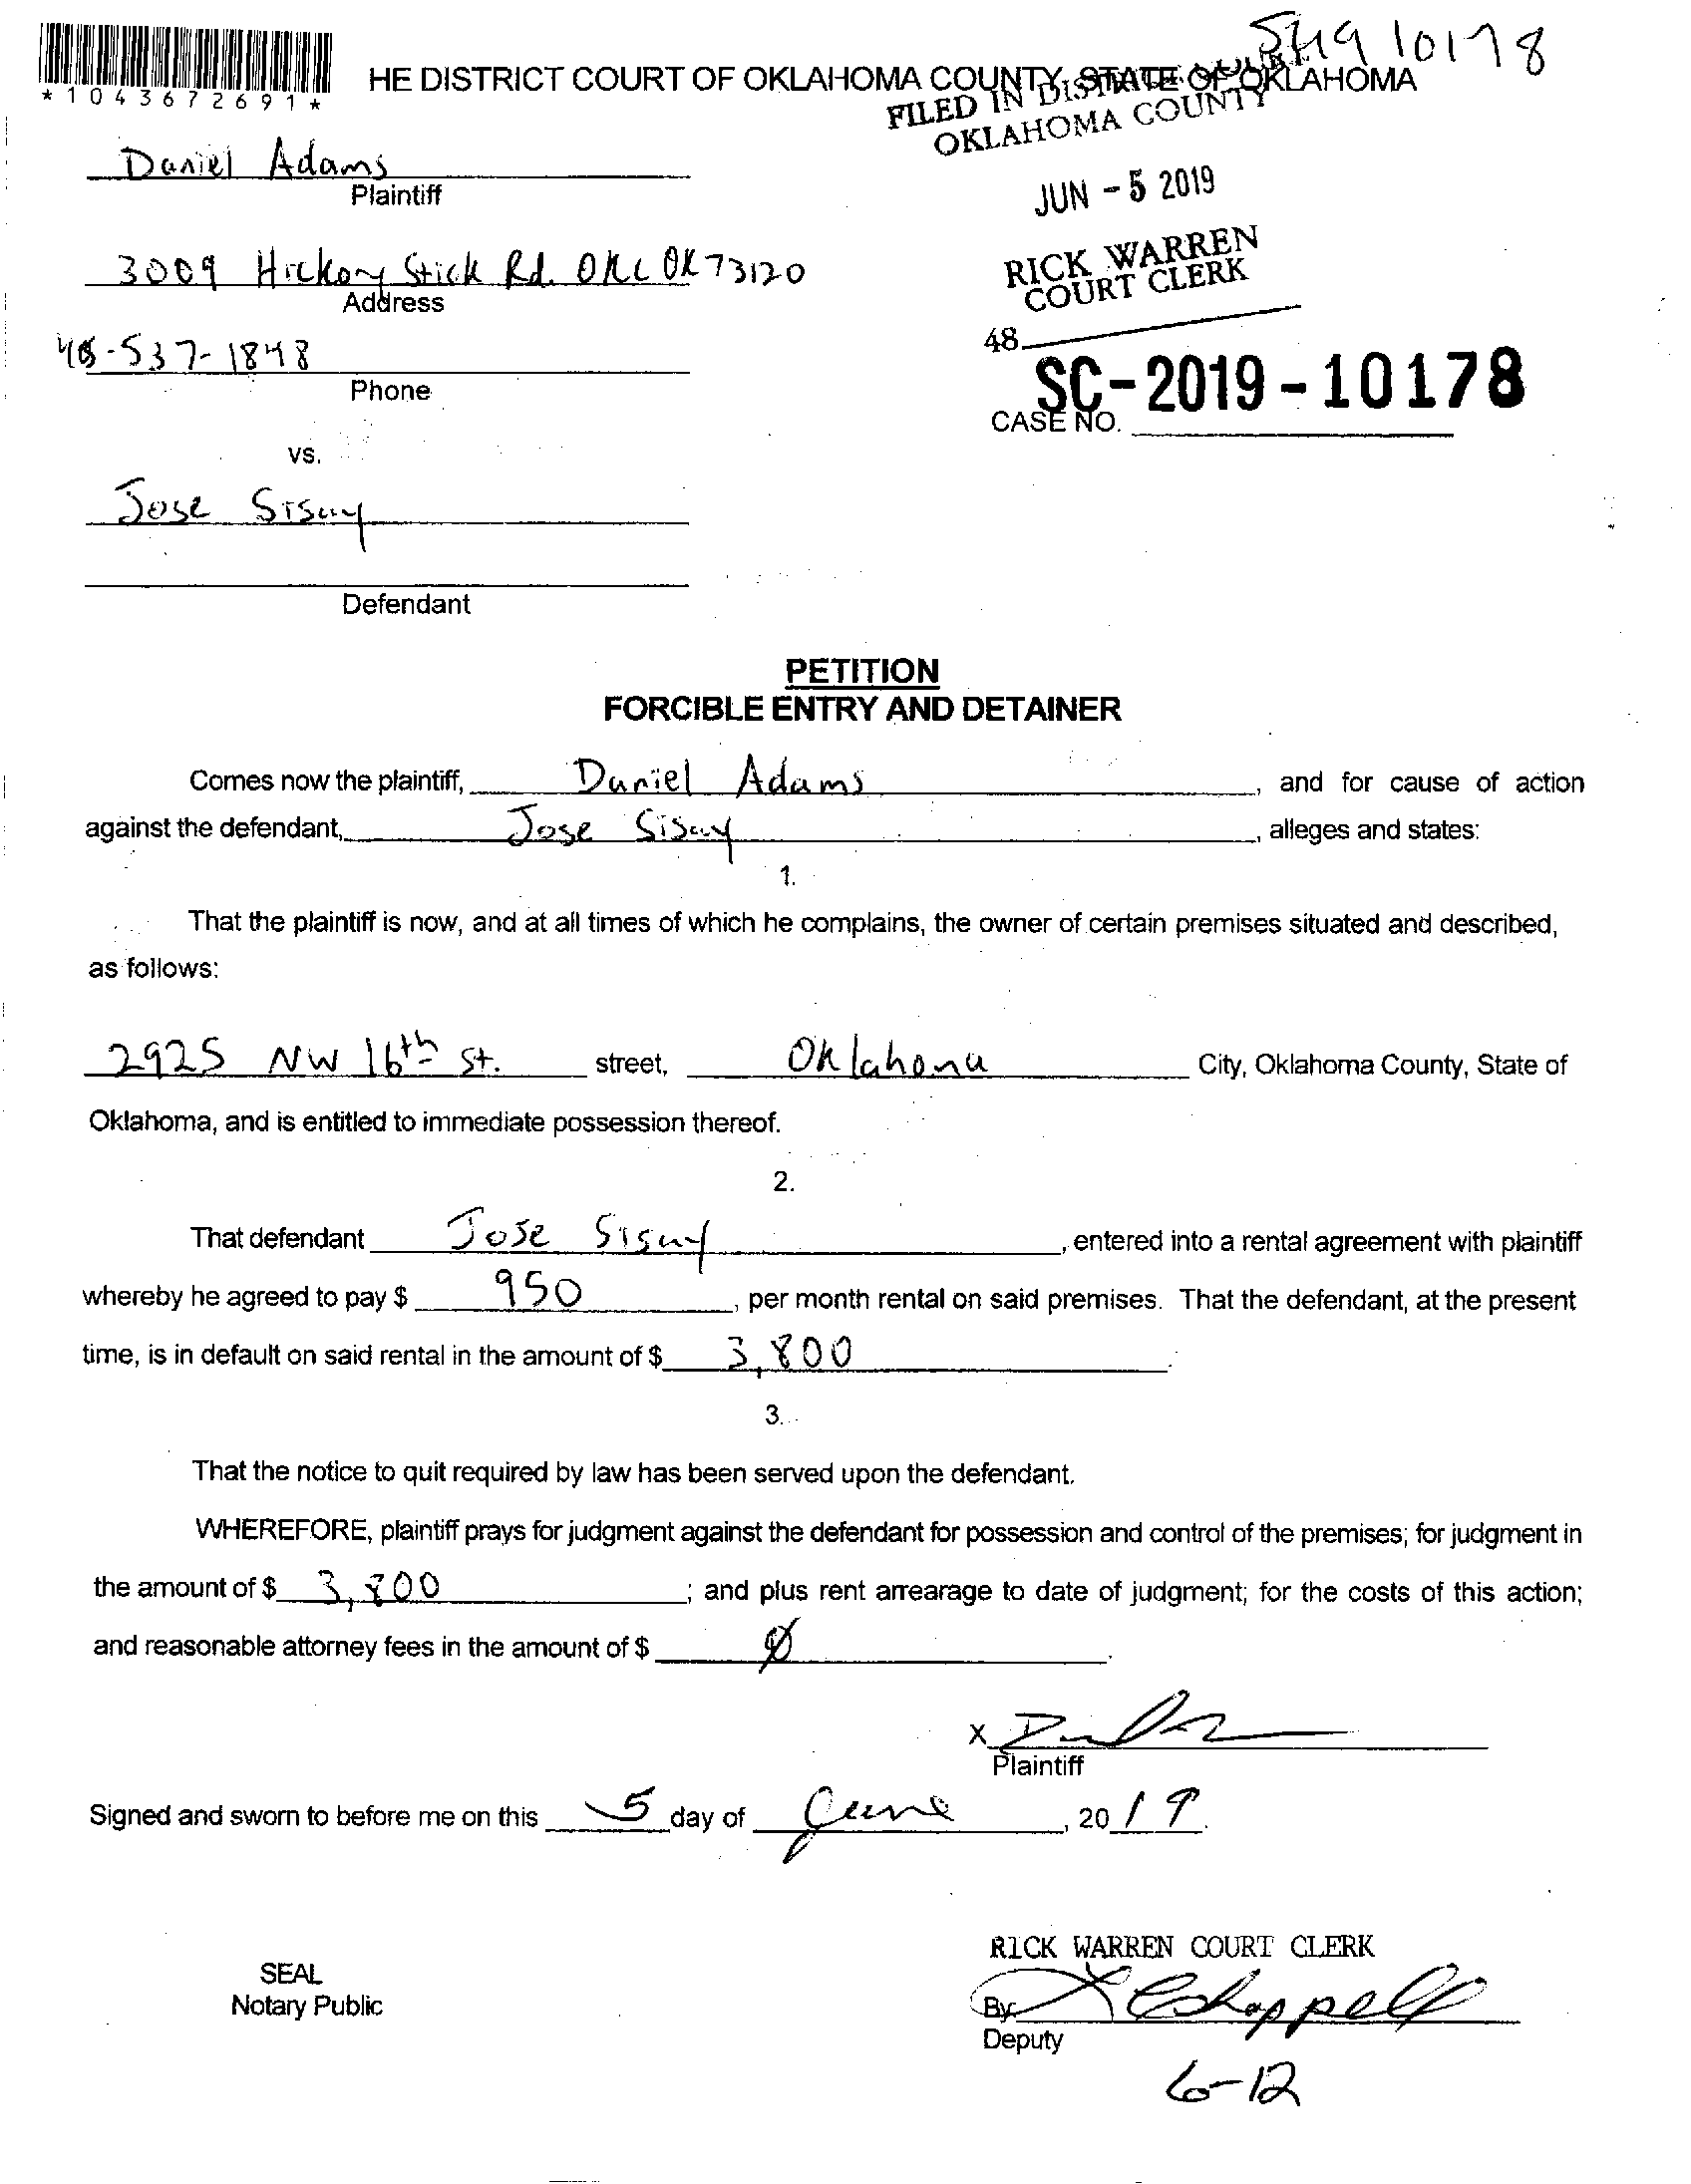 SH19 10178
*1043672691*
HE DISTRICT COURT OF OKLAHOMA COUNTY, STATE OF OKLAHOMA
FILED IN DISTRICT COURT
OKLAHOMA COUNTY
Daniel Adams
Plaintiff
JUN - 5 2019
3009 Hickory Stick Rd. OKC OK 73120
Address
RICK WARREN
COURT CLERK
48
-537-1848
Phone
SC-2019-10178
CASE NO.
vs.
Jose Sisay
Defendant
PETITION
FORCIBLE ENTRY AND DETAINER
Comes now the plaintiff, Daniel Adams, and for cause of action
against the defendant, Jose Sisay, alleges and states:
1.
That the plaintiff is now, and at all times of which he complains, the owner of certain premises situated and described,
as follows:
2925 NW 16th St. street, Oklahoma City, Oklahoma County, State of
Oklahoma, and is entitled to immediate possession thereof.
2.
That defendant Jose Sisay, entered into a rental agreement with plaintiff
whereby he agreed to pay $ 950, per month rental on said premises. That the defendant, at the present
time, is in default on said rental in the amount of $ 3,800.
3.
That the notice to quit required by law has been served upon the defendant.
WHEREFORE, plaintiff prays for judgment against the defendant for possession and control of the premises; for judgment in
the amount of $ 3,800; and plus rent arrearage to date of judgment; for the costs of this action;
and reasonable attorney fees in the amount of $ Ø.
X
Plaintiff
Signed and sworn to before me on this 5 day of June, 2019.
RICK WARREN COURT CLERK
SEAL
Notary Public
By: Chappell
Deputy
6-12